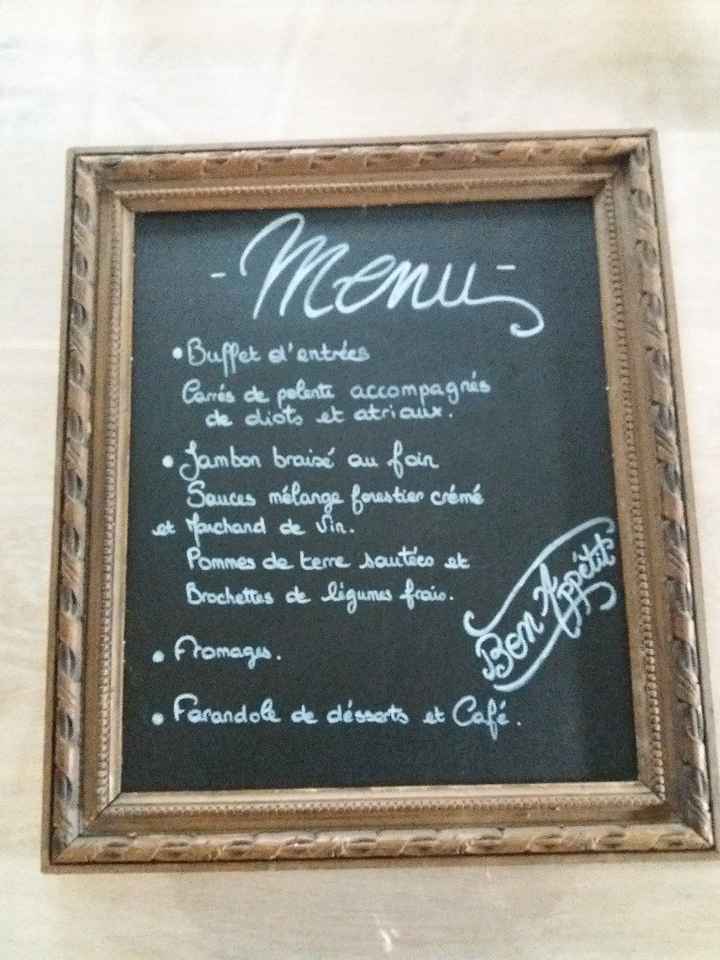 - Menu -
• Buffet d'entrées
Carrés de polente accompagnés
de diots et atriaux.
• Jambon braisé au foin
Sauces mélange forestier crémé
et Marchand de Vin.
Pommes de terre sautées et
Brochettes de légumes frais.
• Fromages.
• Farandole de désserts et Café.
Bon Appétit